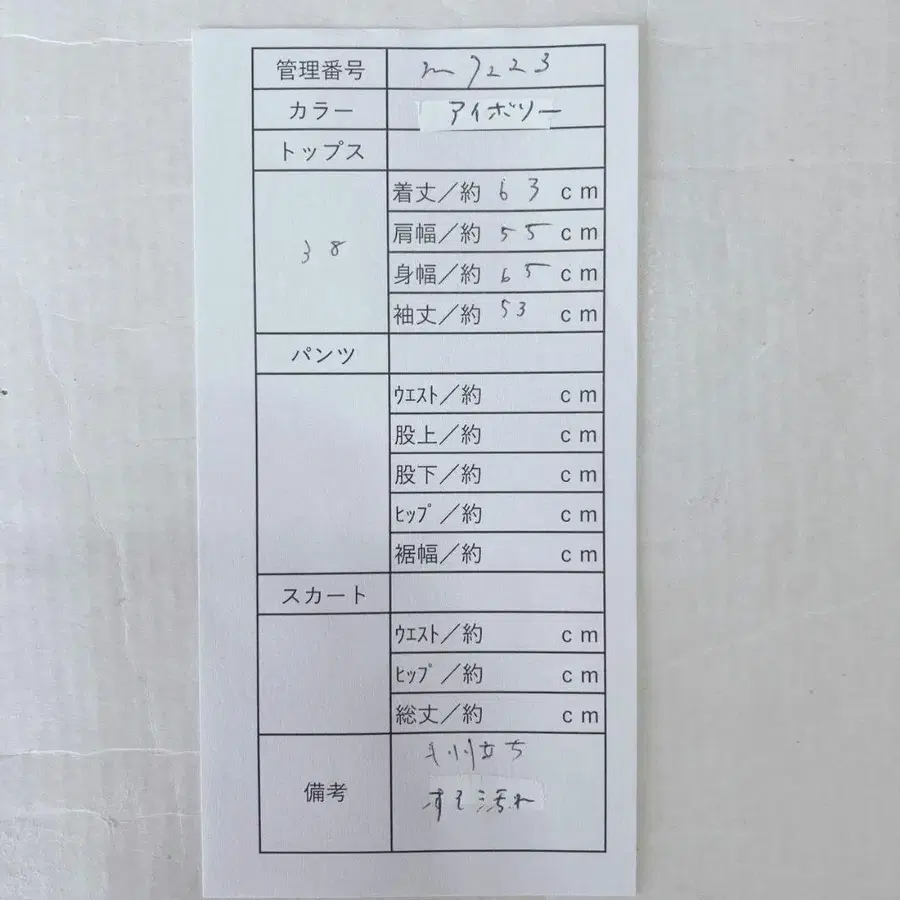 管理番号 m7223
カラー アイボリー
トップス
38
着丈／約 63 cm
肩幅／約 55 cm
身幅／約 65 cm
袖丈／約 53 cm
パンツ
ｳｴｽﾄ／約 cm
股上／約 cm
股下／約 cm
ﾋｯﾌﾟ／約 cm
裾幅／約 cm
スカート
ｳｴｽﾄ／約 cm
ﾋｯﾌﾟ／約 cm
総丈／約 cm
備考
毛羽立ち
すそ汚れ